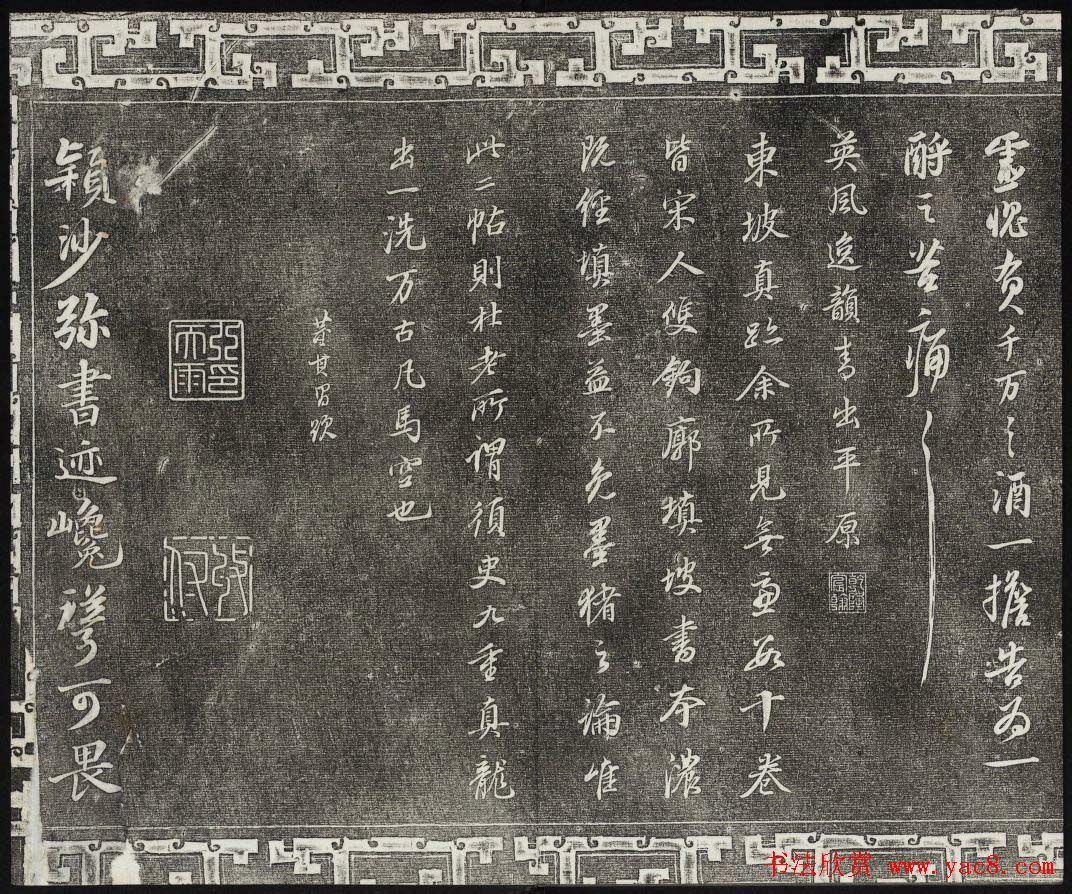 靈愧負千万之酒一擔告为一
酹之苦痛〻
英風逸韻高出平原
乾隆宸翰
東坡真跡余所見無慮數十卷
皆宋人雙鉤廓填坡書本濃
既經填墨益不免墨猪之論唯
此二帖則杜老所謂須臾九重真龍
出一洗万古凡馬空也
董其昌題
穎沙弥書迹巉聳可畏
书法欣赏 www.yac8.com